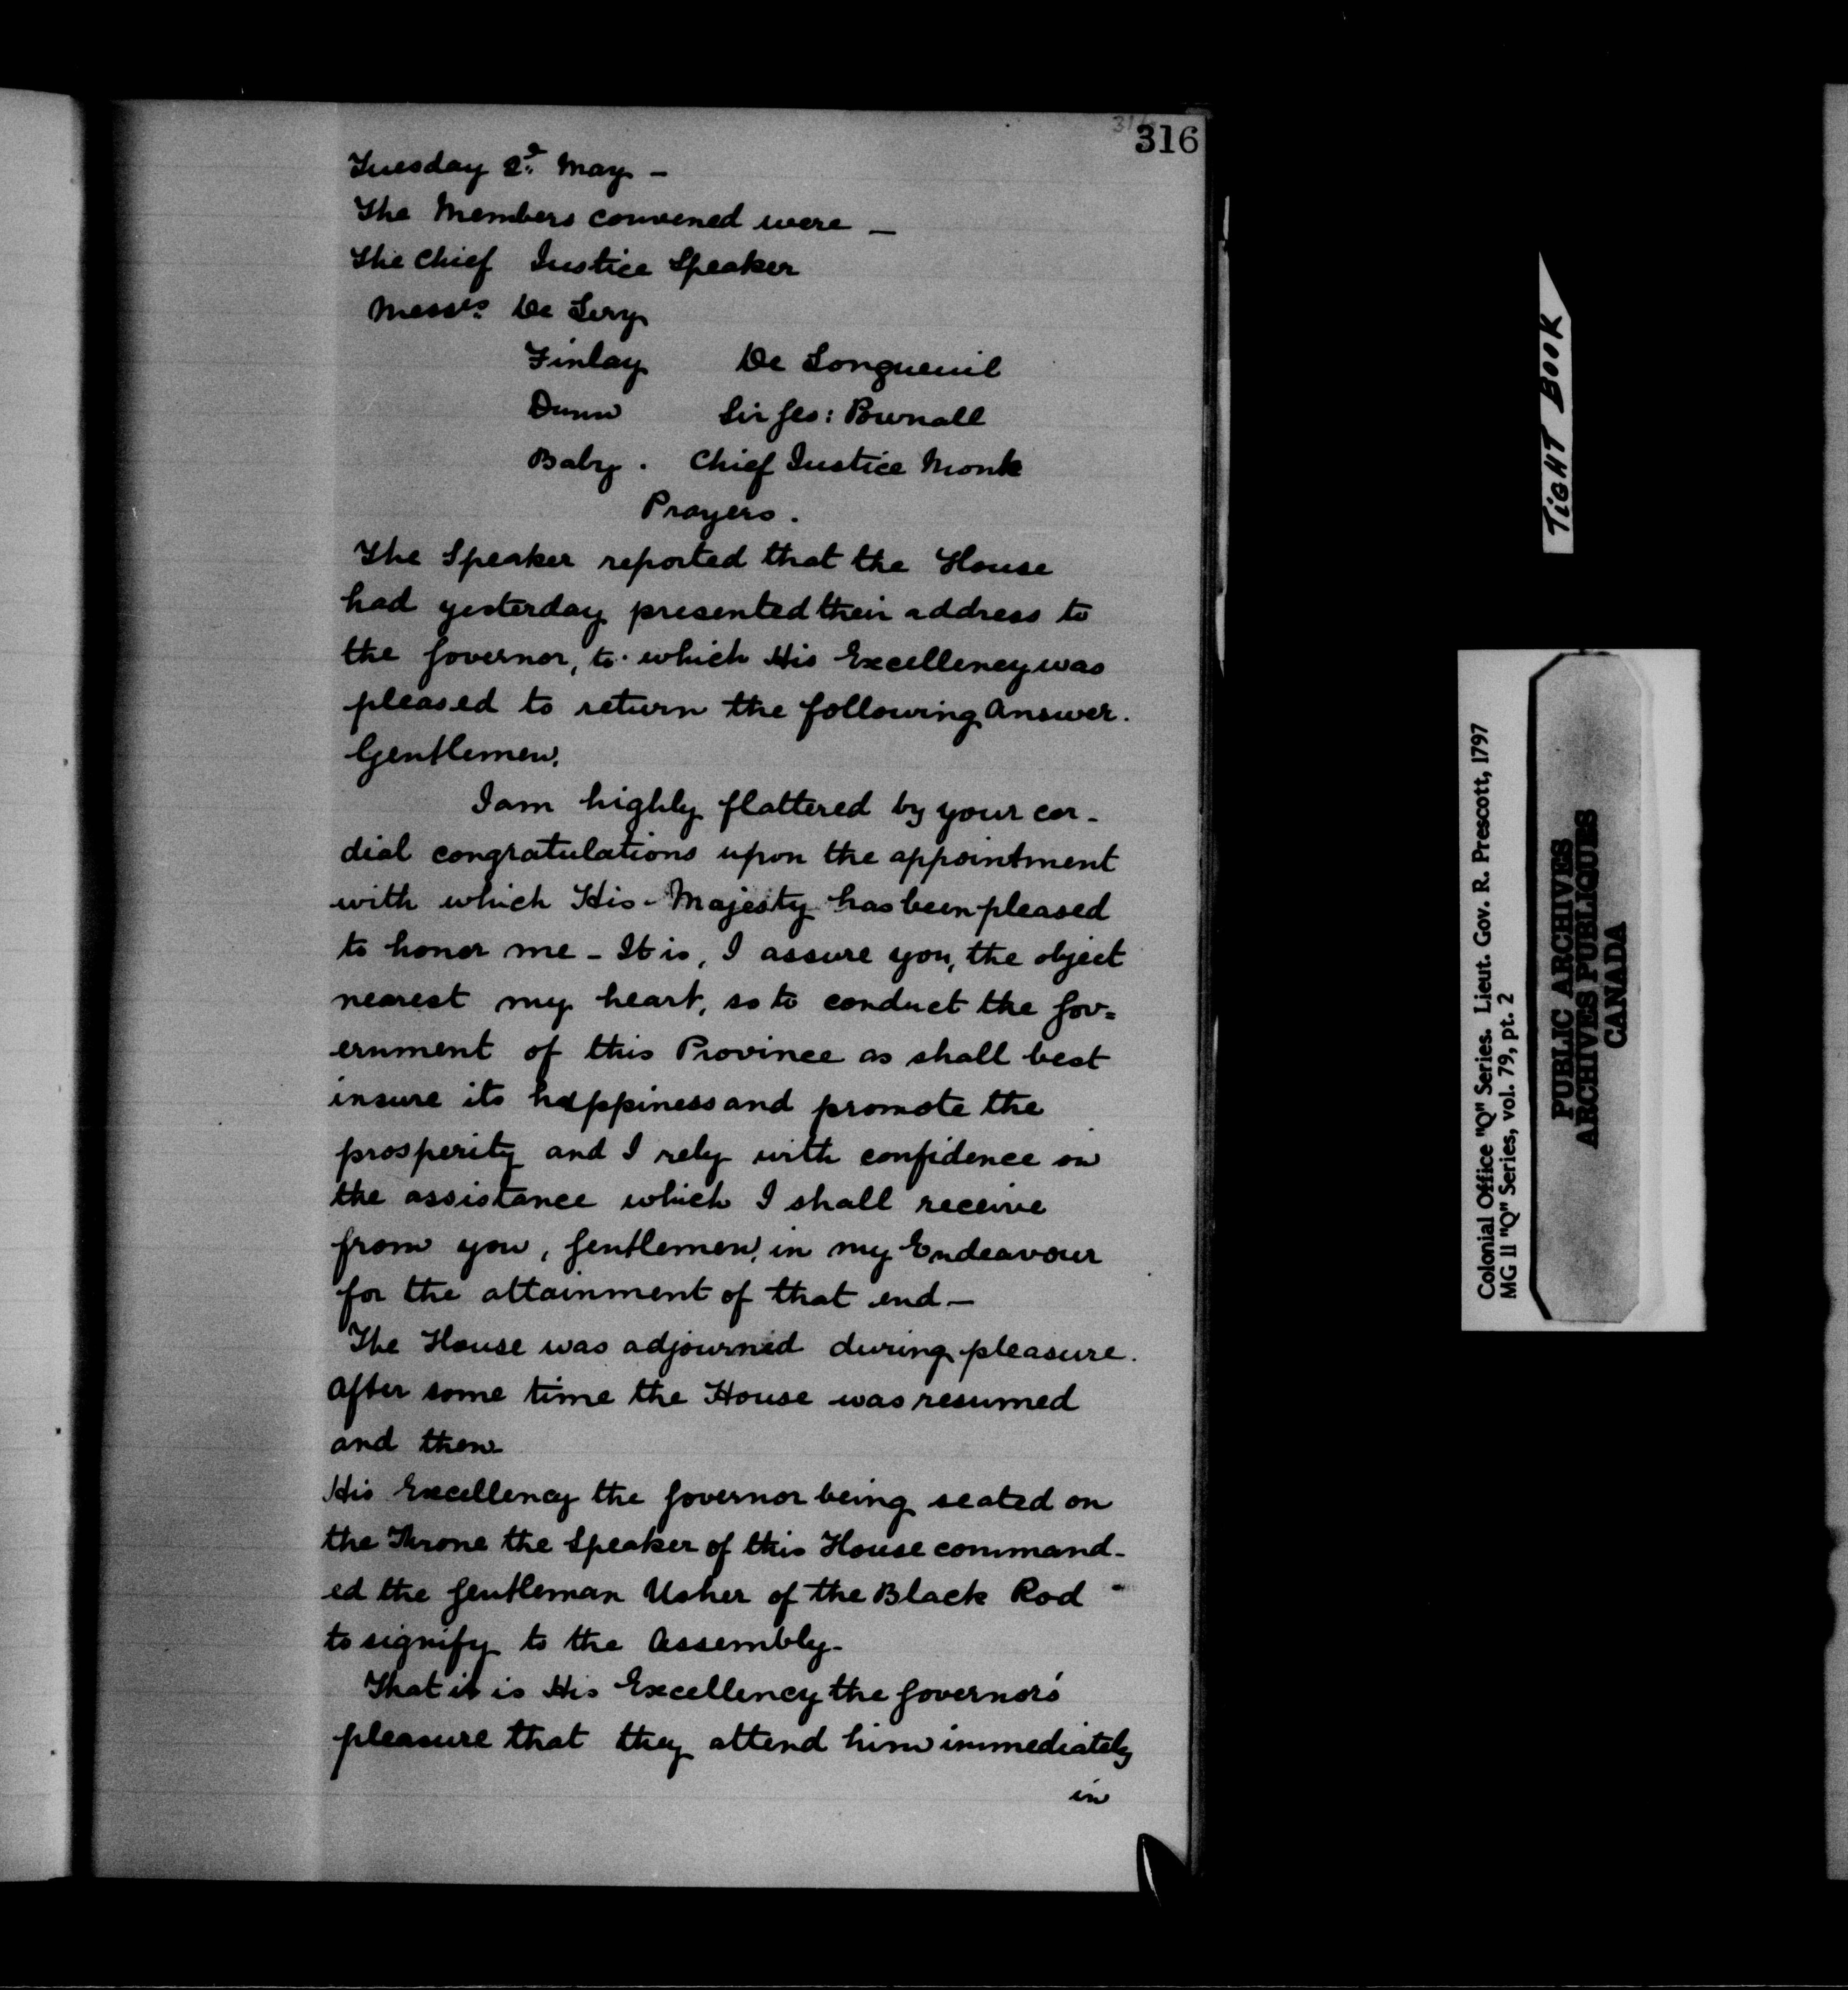 316
Tuesday 2d. May –
The Members convened were –
The Chief Justice Speaker
Messrs. De Lery
Finlay De Longueuil
Dunn Sir Geo: Pownall
Baby. Chief Justice Monk
Prayers.
The Speaker reported that the House
had yesterday presented their address to
the Governor, to which His Excellency was
pleased to return the following Answer.
Gentlemen,
I am highly flattered by your cor-
dial congratulations upon the appointment
with which His Majesty has been pleased
to honor me – It is, I assure you, the object
nearest my heart, so to conduct the Gov=
ernment of this Province as shall best
insure its happiness and promote the
prosperity and I rely with confidence on
the assistance which I shall receive
from you, Gentlemen, in my Endeavour
for the attainment of that end –
The House was adjourned during pleasure.
After some time the House was resumed
and then
His Excellency the Governor being seated on
the Throne the Speaker of this House command-
ed the Gentleman Usher of the Black Rod
to signify to the Assembly-
That it is His Excellency the Governor's
pleasure that they attend him immediately
in
TIGHT BOOK
Colonial Office "Q" Series. Lieut. Gov. R. Prescott, 1797
MG 11 "Q" Series, vol. 79, pt. 2
PUBLIC ARCHIVES
ARCHIVES PUBLIQUES
CANADA